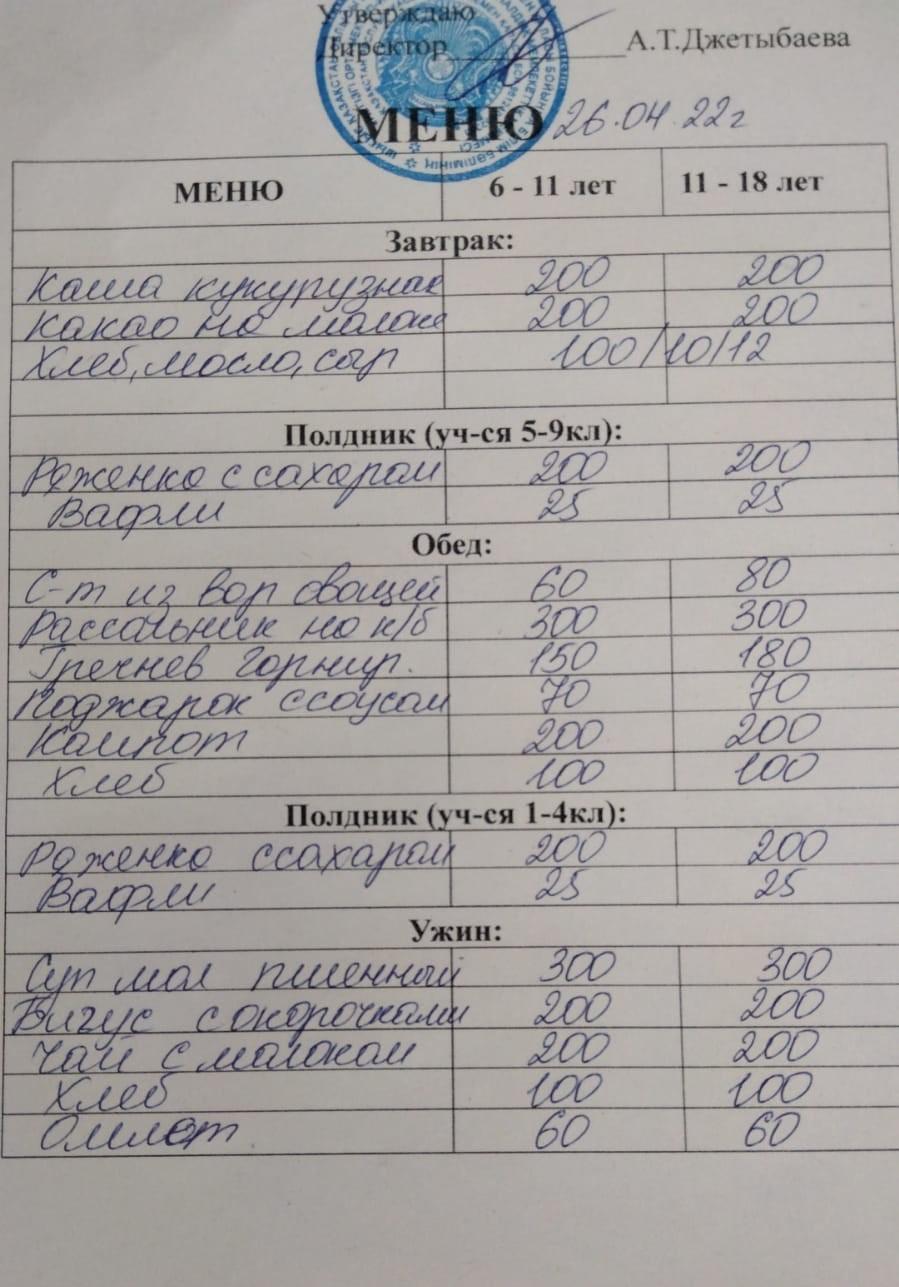 Утверждаю
Директор А.Т.Джетыбаева
МЕНЮ 26.04.22г
МЕНЮ 6 - 11 лет 11 - 18 лет
Завтрак:
Каша кукурузная 200 200
Какао на молоке 200 200
Хлеб, масло, сыр 100/10/12
Полдник (уч-ся 5-9кл):
Ряженка с сахаром 200 200
Вафли 25 25
Обед:
С-т из вар овощей 60 80
Рассольник на к/б 300 300
Гречнев гарнир. 150 180
Поджарок с соусом 70 70
Компот 200 200
Хлеб 100 100
Полдник (уч-ся 1-4кл):
Ряженка с сахаром 200 200
Вафли 25 25
Ужин:
Суп мол пшенный 300 300
Бигус с окорочками 200 200
Чай с молоком 200 200
Хлеб 100 100
Омлет 60 60